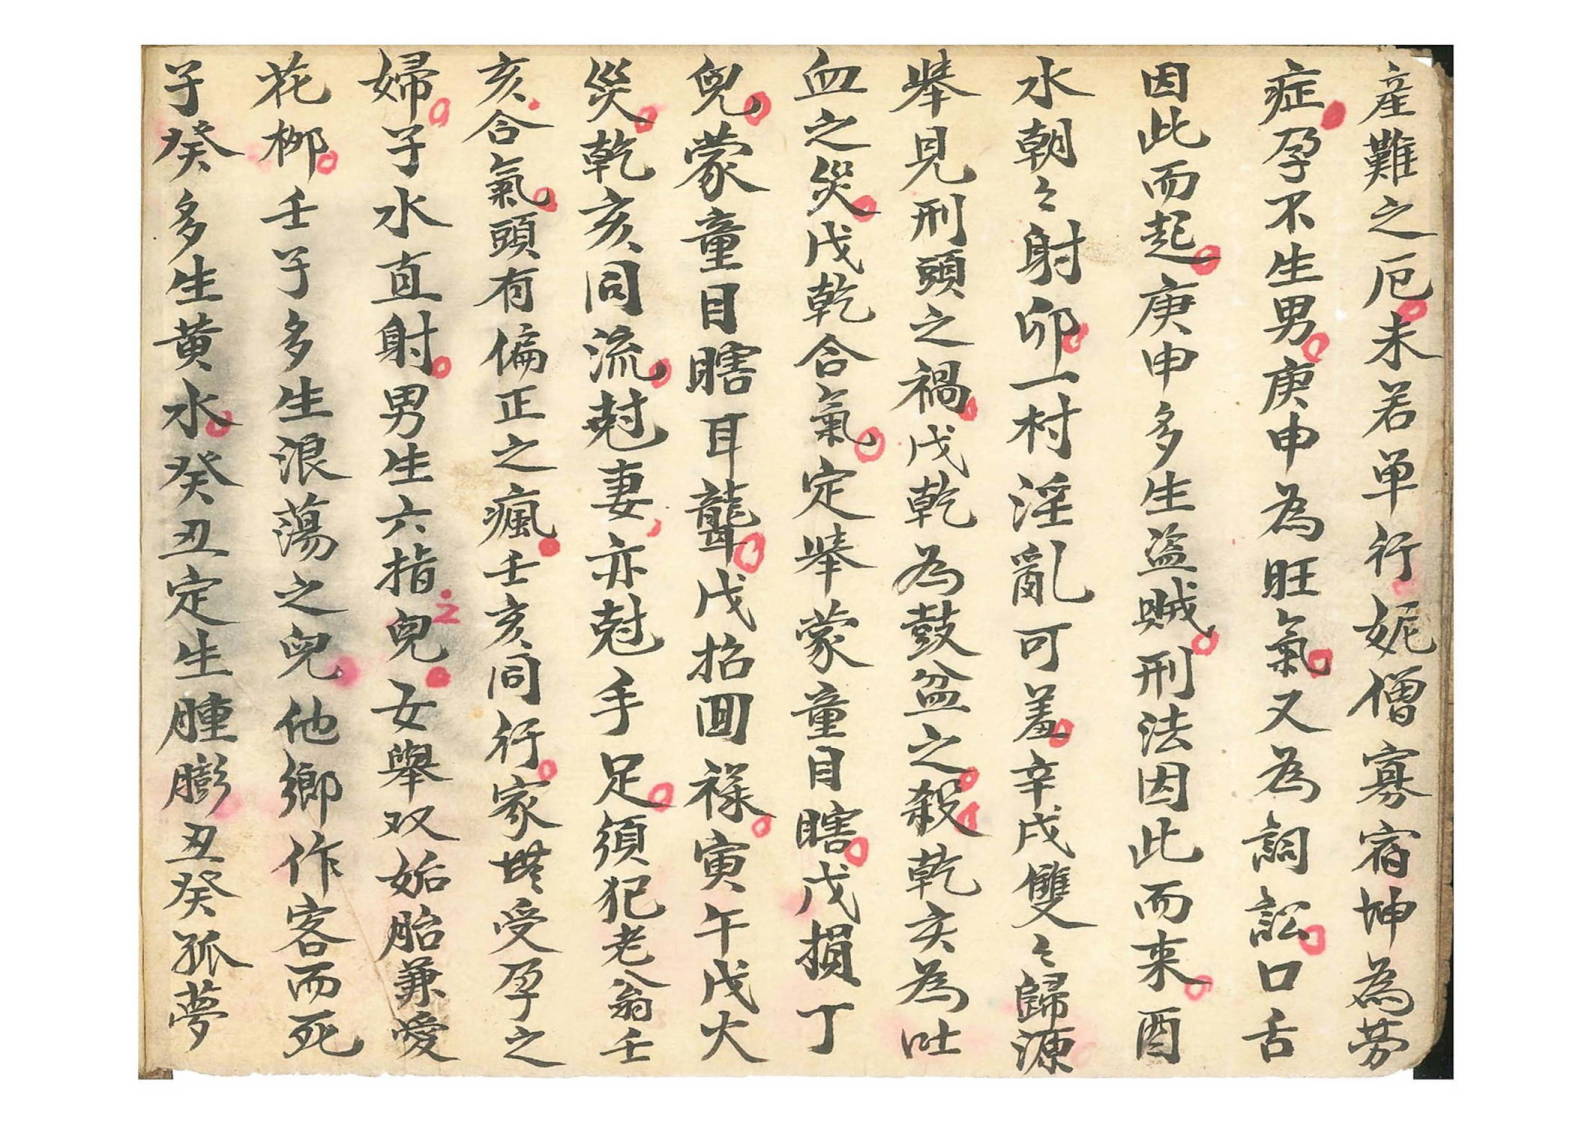 産難之厄未若单行妮僧寡宿坤為劳
症孕不生男庚申為旺氣又為詞訟口舌
因此而起庚申多生盜贼刑法因此而来酉
水朝々射卯一村淫亂可羞辛戌雙々歸源
举見刑頭之禍戊乾為鼓盆之殺乾亥為吐
血之災戊乾合氣定举蒙童目瞎戊損丁
兒蒙童目瞎耳聾戊招囬禄寅午戊火
災乾亥同流尅妻亦尅手足須犯老翁壬
亥合氣頭有偏正之瘋壬亥同行家受孕之
婦子水直射男生六指之兒女舉双妬胎兼嗳
花柳壬子多生浪蕩之兒他鄉作客而死
子癸多生黄水癸丑定生腫膨丑癸孤夢